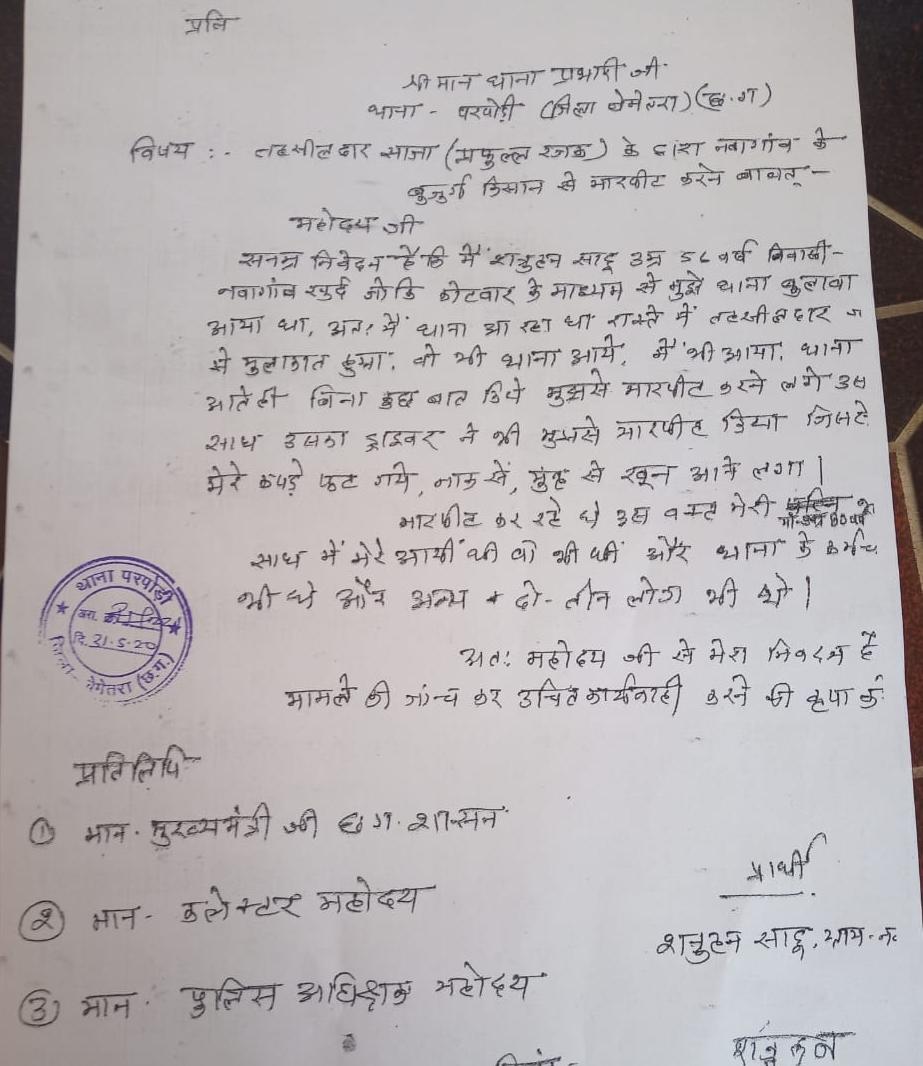 प्रति
श्री मान थाना प्रभारी जी
थाना - परपोड़ी (जिला बेमेतरा) (छ.ग)
विषय :- तहसीलदार साजा (प्रफुल्ल रजक) के द्वारा नवागांव के
बुजुर्ग किसान से मारपीट करने बाबत् -
महोदय जी
सनम्र निवेदन है कि मैं शत्रुहन साहू उम्र 56 वर्ष निवासी -
नवागांव खुर्द जो कि कोटवार के माध्यम से मुझे थाना बुलावा
आया था, अतः मैं थाना आ रहा था रास्ते में तहसीलदार ज
से मुलाकात हुआ. वो भी थाना आये, मैं भी आया. थाना
आते ही बिना कुछ बात किये मुझसे मारपीट करने लगे उस
साथ उसका ड्राइवर ने भी मुझसे मारपीट किया जिससे
मेरे कपड़े फट गये, नाक से, मुंह से खून आने लगा |
मारपीट कर रहे थे उस वक्त मेरी
साथ में मेरे आयीं थी वो भी थीं और थाना के कर्मच
भी थे और अन्य दो-तीन लोग भी थे |
अतः महोदय जी से मेरा निवेदन है
मामले की जांच कर उचित कार्यवाही करने की कृपा क
थाना परपोड़ी
दि. 21.5.20
जिला - बेमेतरा (छ.ग.)
प्रतिलिपि
① मान. मुख्यमंत्री जी छ.ग. शासन
② मान. कलेक्टर महोदय
③ मान. पुलिस अधिक्षक महोदय
प्रार्थी
शत्रुहन साहू, ग्राम - न
शत्रुहन